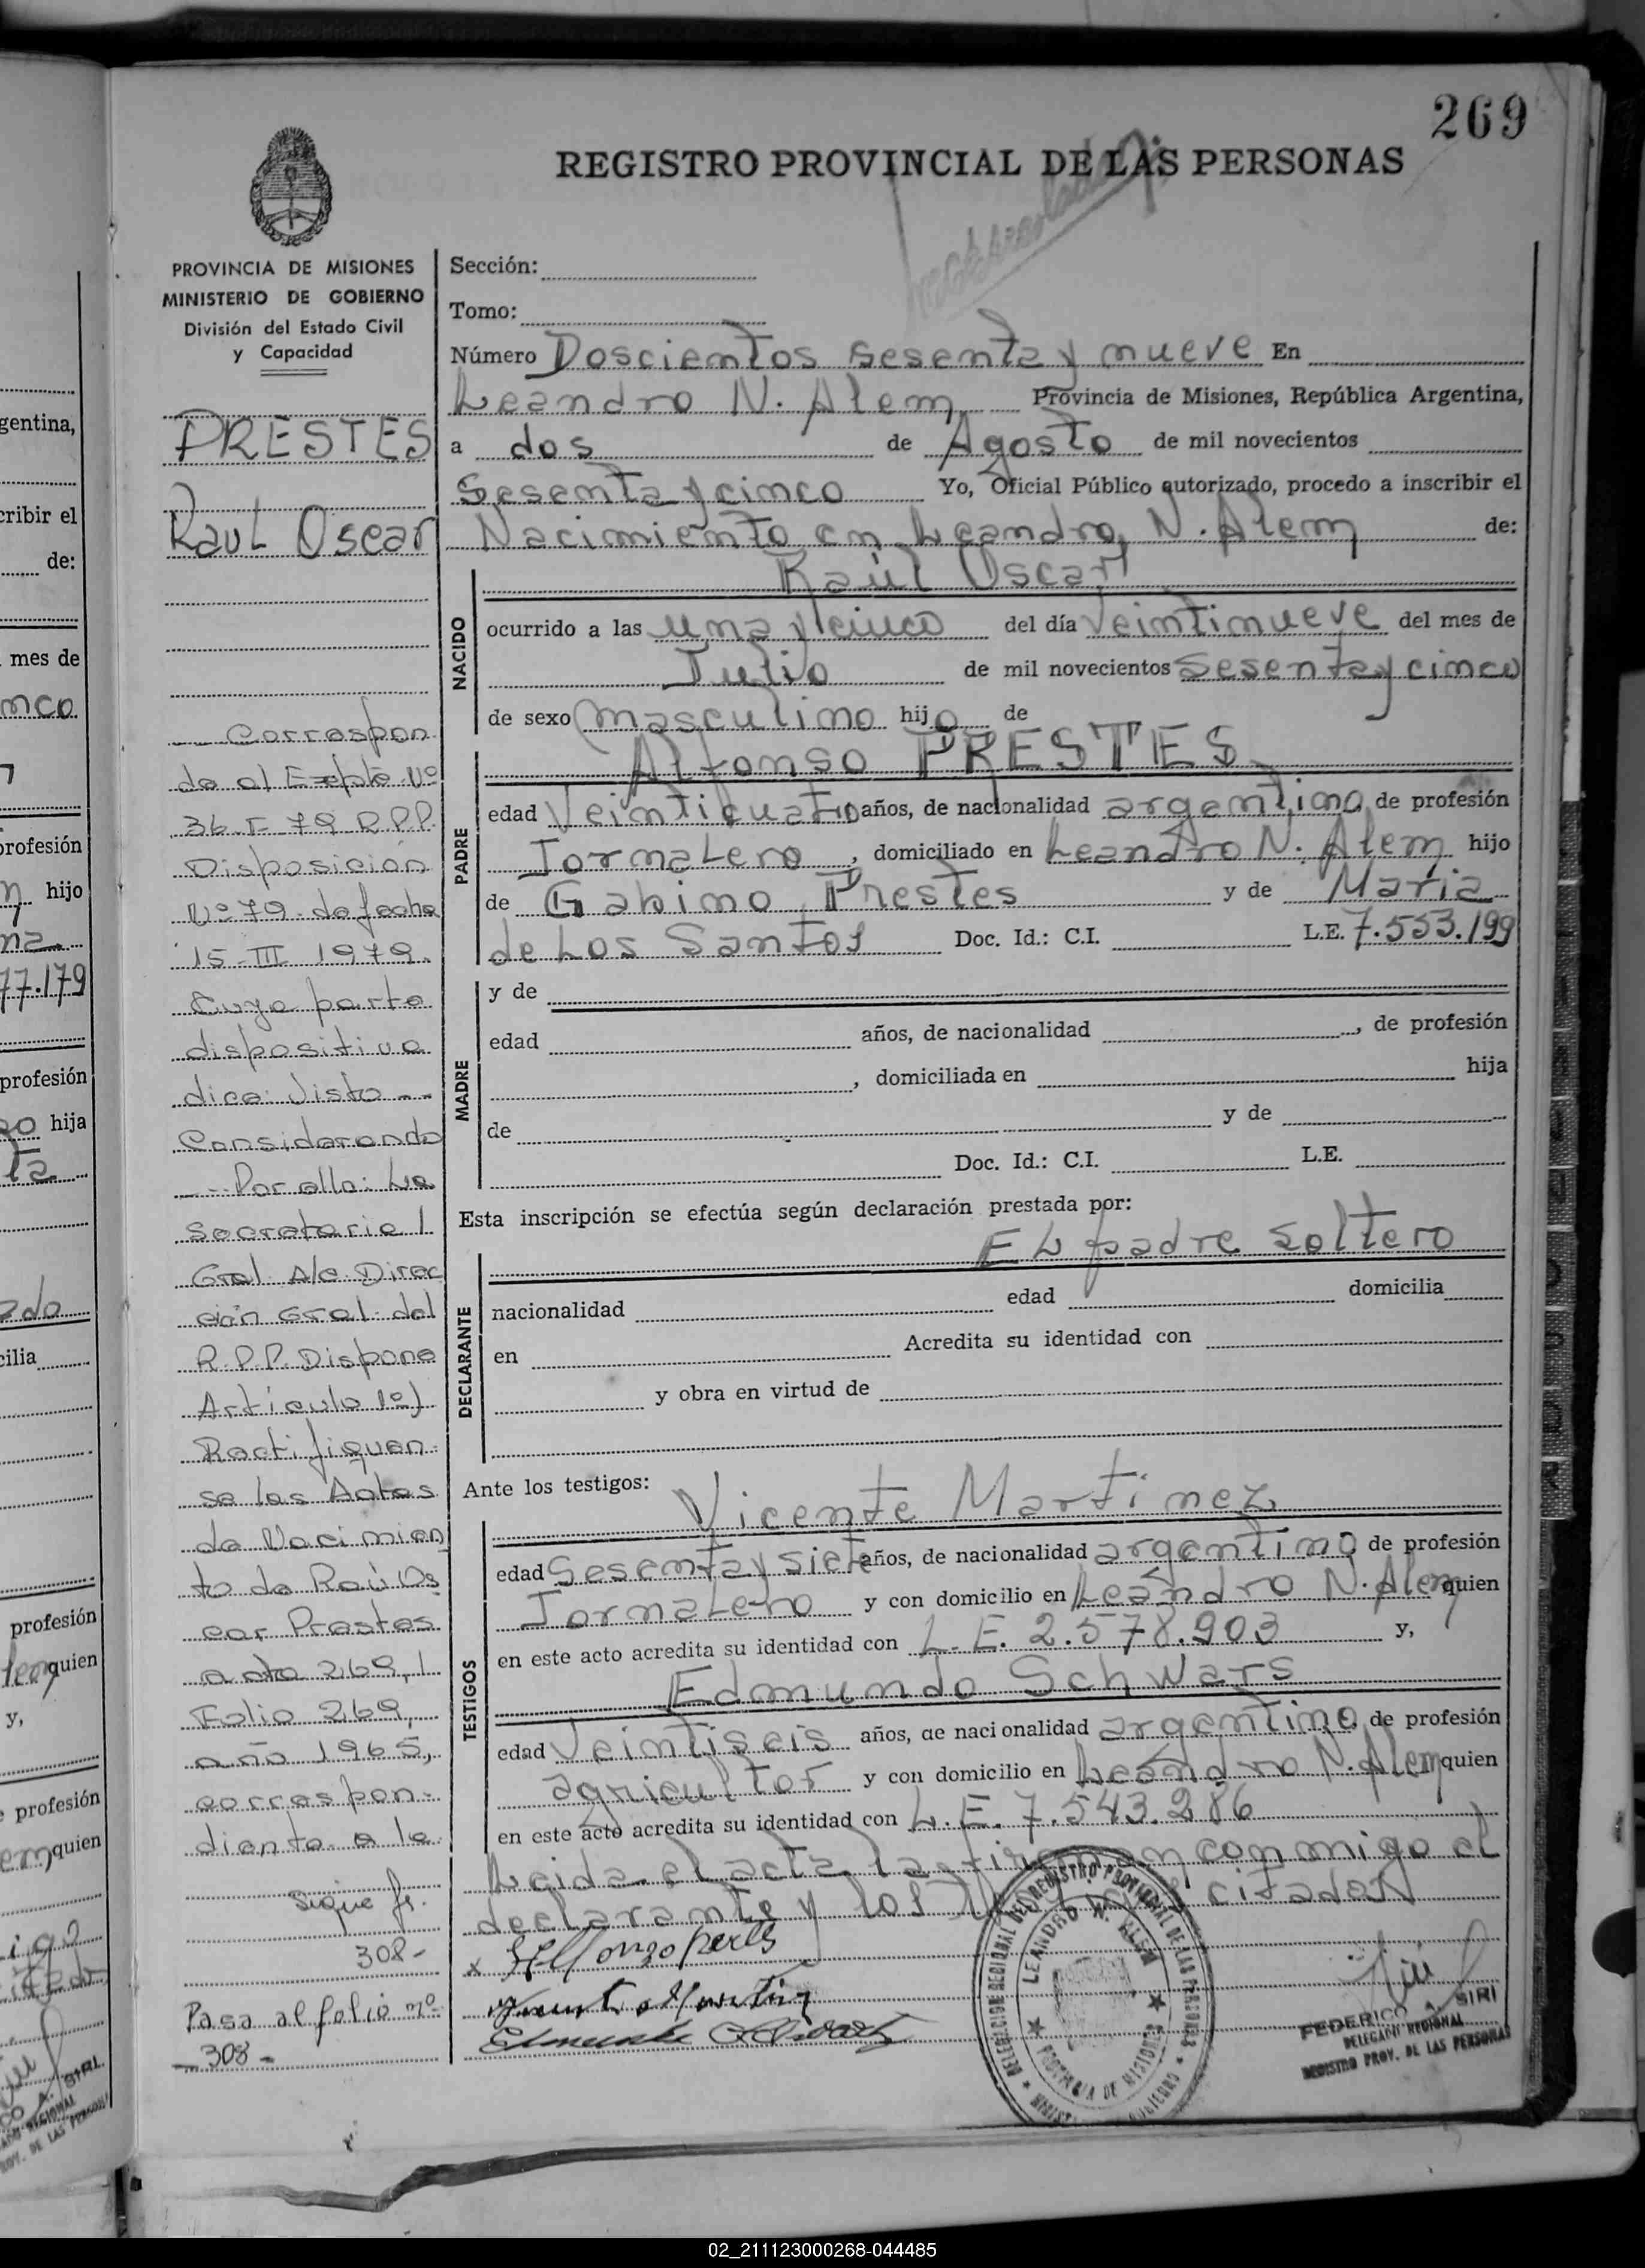 269
REGISTRO PROVINCIAL DE LAS PERSONAS
PROVINCIA DE MISIONES
MINISTERIO DE GOBIERNO
División del Estado Civil
y Capacidad
PRESTES
Raul Oscar
Correspon
de al Expte Nº
36-I-79 R.P.P.
Disposición
Nº 79 de fecha
15-III 1979.
Cuya parte
dispositiva
dice: Visto --
Considerando
-- Por ello: La
Secretaria
Gral. A/c. Direc
ción Gral. del
R.P.P. Dispone
Artículo 1º)
Rectifiquen-
se las Actas
de Nacimien
to de Raúl Os
car Prestes
acta 269,
Folio 269,
año 1965,
correspon-
diente a la
Sigue fs.
308-
Pasa al folio nº
-308-
Sección:
Tomo:
Número Doscientos sesenta y nueve En
Leandro N. Alem Provincia de Misiones, República Argentina,
a dos de Agosto de mil novecientos
Sesenta y cinco Yo, Oficial Público autorizado, procedo a inscribir el
Nacimiento en Leandro N. Alem de:
Raúl Oscar
NACIDO
ocurrido a las una y cinco del día Veintinueve del mes de
Julio de mil novecientos Sesenta y cinco
de sexo masculino hijo de
Alfonso PRESTES
PADRE
edad Veinticuatro años, de nacionalidad argentino, de profesión
Jornalero, domiciliado en Leandro N. Alem hijo
de Gabino Prestes y de Maria
de Los Santos Doc. Id.: C.I. L.E. 7.553.199
MADRE
y de
edad años, de nacionalidad , de profesión
, domiciliada en hija
de y de
Doc. Id.: C.I. L.E.
Esta inscripción se efectúa según declaración prestada por:
El padre soltero
DECLARANTE
nacionalidad edad domicilia
en Acredita su identidad con
y obra en virtud de
Ante los testigos:
Vicente Martinez
TESTIGOS
edad Sesenta y siete años, de nacionalidad argentino, de profesión
Jornalero y con domicilio en Leandro N. Alem quien
en este acto acredita su identidad con L.E. 2.578.903 y,
Edmundo Schwars
edad Veintiseis años, de nacionalidad argentino, de profesión
agricultor y con domicilio en Leandro N. Alem quien
en este acto acredita su identidad con L.E. 7.543.286
Leida el acta la firman conmigo el
declarante y los citados
LEANDRO N. ALEM
PROVINCIA DE MISIONES
FEDERICO A. SIRI
DELEGADO REGIONAL
REGISTRO PROV. DE LAS PERSONAS
02_211123000268-044485